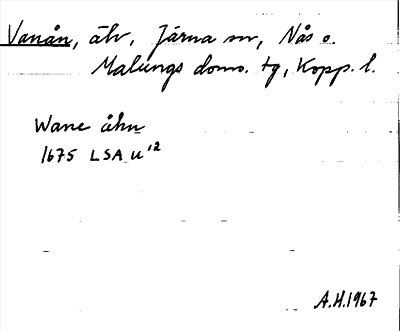 Vanån, älv, Järna sn, Nås o.
Malungs doms. tg, Kopp. l.
Wane åhn
1675 LSA U¹²
A.H. 1967